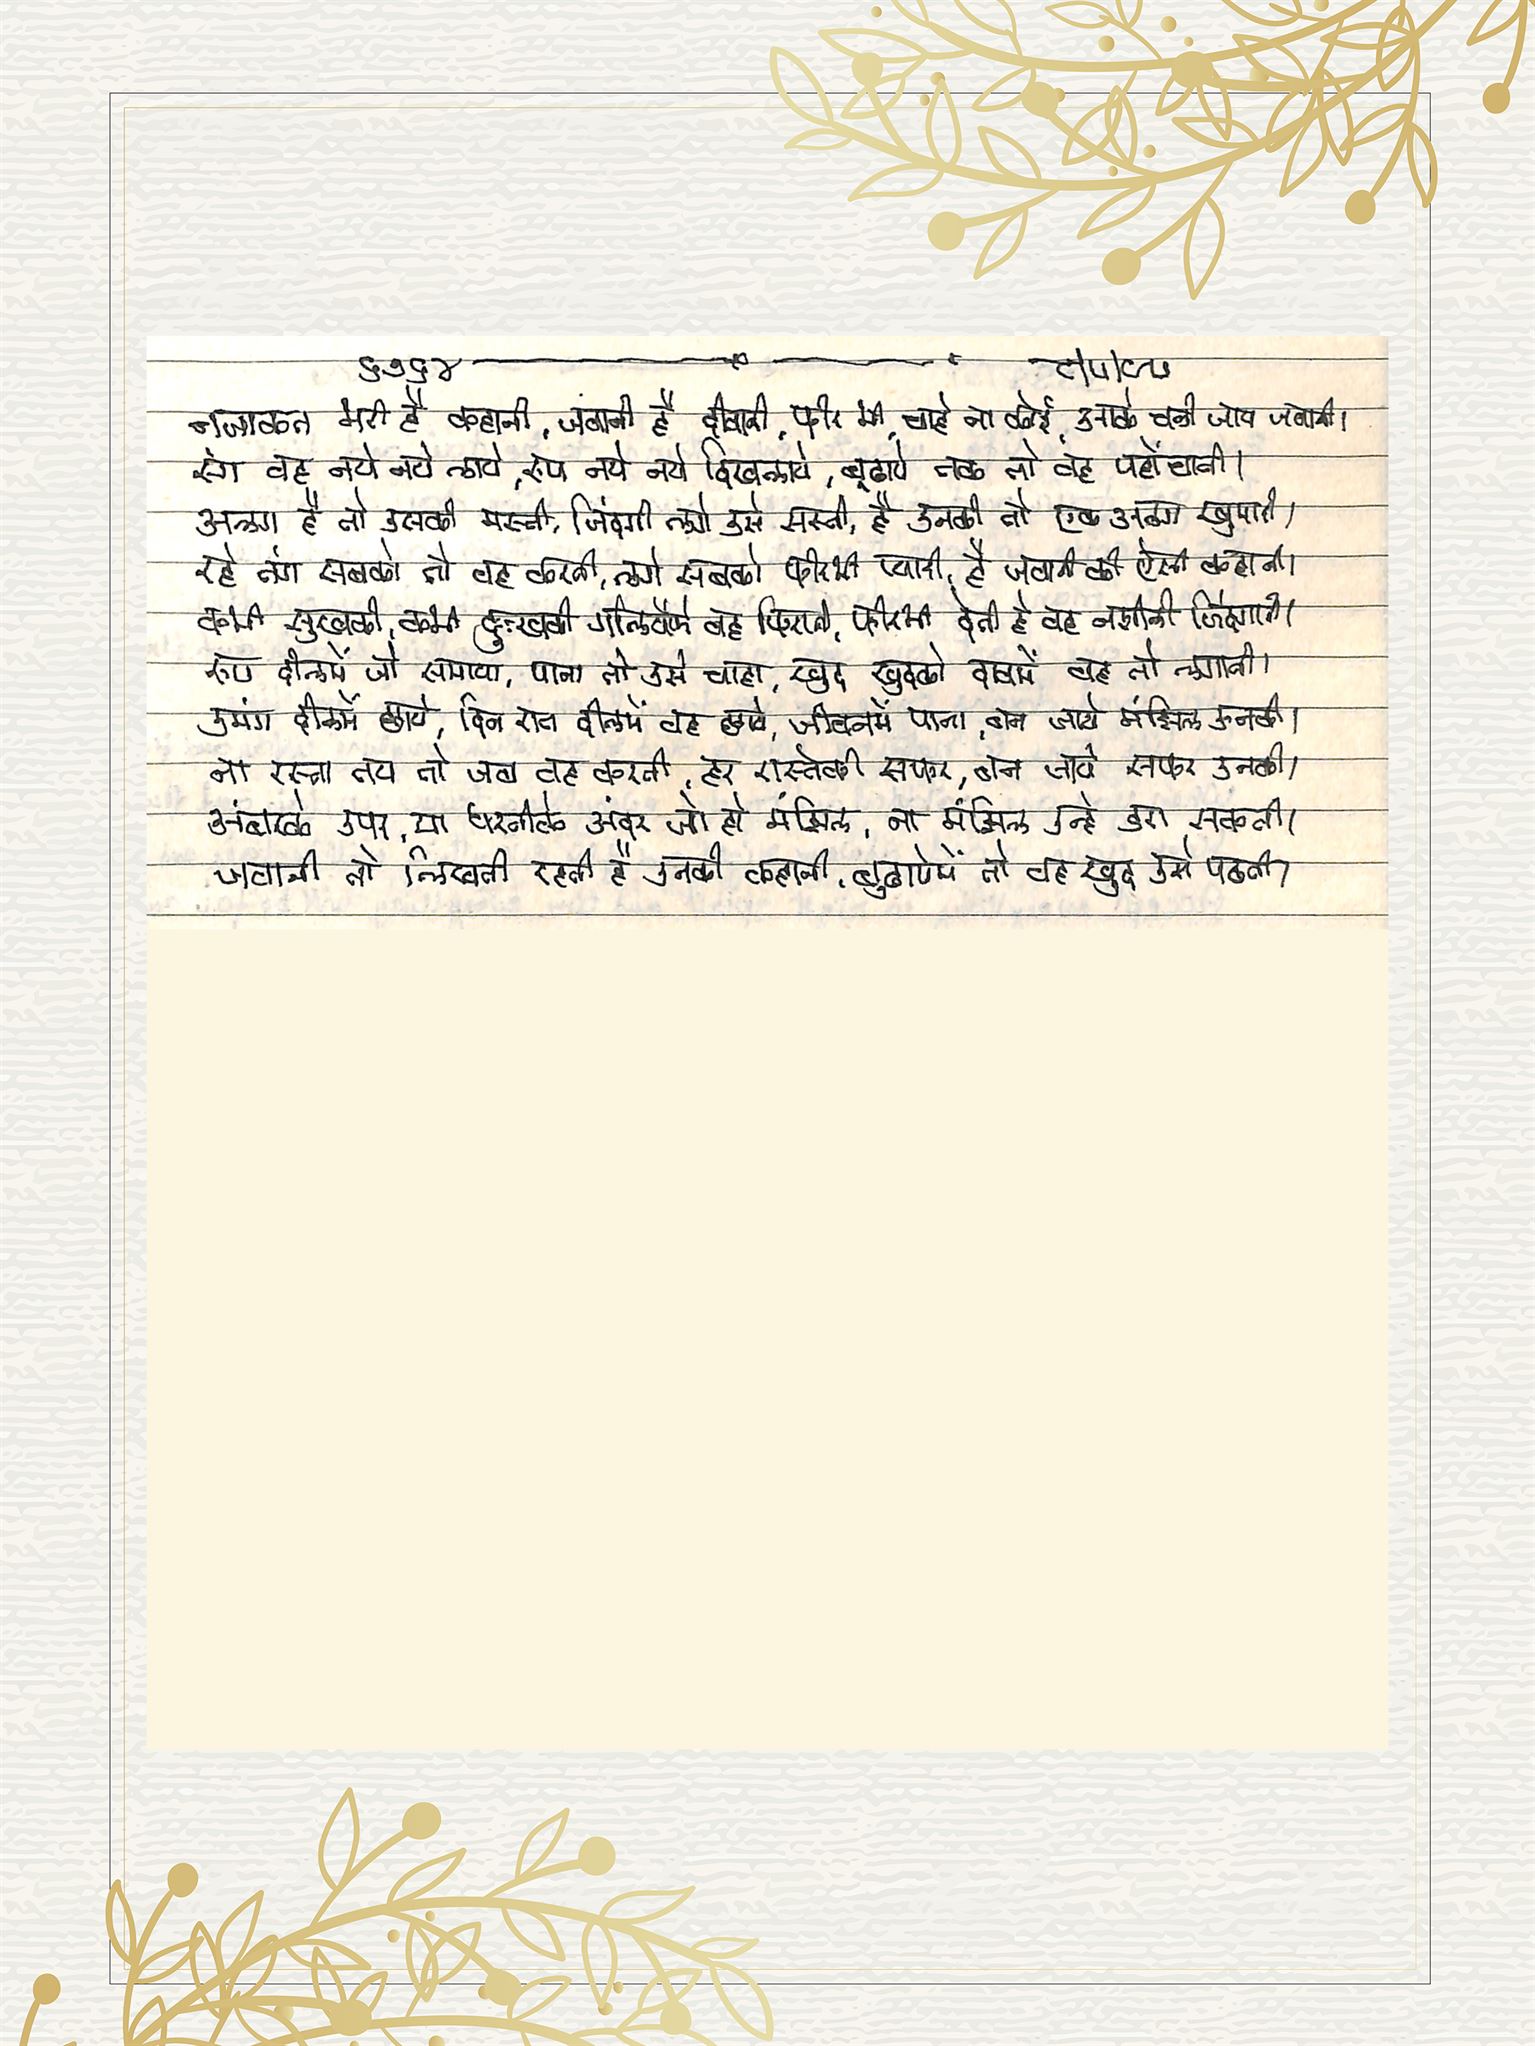 ६७६४ ८/५/८५
नजाकत भरी है कहानी, जवानी है दीवानी, फीर भी, चाहे ना कोई, आके चली जाय जवानी।
रंग वह नये नये लाये, रूप नये नये दिखलाये, बूढापे तक तो वह पहोंचाती।
अलग है तो उसकी मस्ती, जिंदगी लगे उसे सस्ती, है उनकी तो एक अलग खुमारी।
रहे तंग सबको तो वह करती, लगे सबको फीरभी प्यारी, है जवानी की ऐसी कहानी।
कभी सुखकी, कभी दुःखकी गलियोंमें वह फिराती, फीरभी देती है वह नशीली जिंदगानी।
रूप दीलमें जो समाया, पाना तो उसे चाहा, खुद खुदको दावमें वह तो लगाती।
उमंग दीलमें छाये, दिन रात दीलमें वह छाये, जीवनमें पाना, बन जाये मंझिल उनकी।
ना रस्ता तय तो जब वह करती, हर रास्तेकी सफर, बन जाये सफर उनकी।
अंबरके उपर, या धरतीके अंदर जो हो मंझिल, ना मंझिल उन्हे डरा सकती।
जवानी तो लिखती रहती है उनकी कहानी, बुढापेमें तो वह खुद उसे पढती।